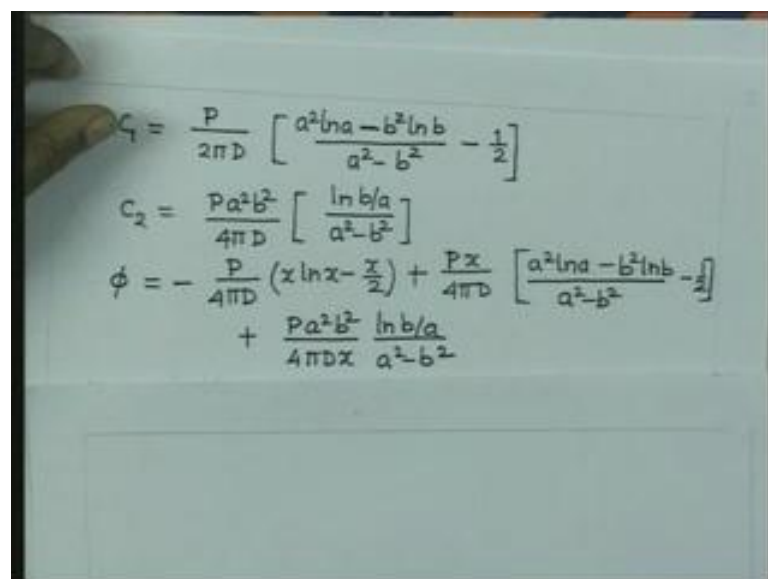 C₁ = P/2πD [ (a² ln a − b² ln b)/(a² − b²) − 1/2 ]
C₂ = Pa²b²/4πD [ (ln b/a)/(a² − b²) ]
φ = − P/4πD (x ln x − x/2) + Px/4πD [ (a² ln a − b² ln b)/(a² − b²) − 1/2 ]
+ Pa²b²/4πDx (ln b/a)/(a² − b²)